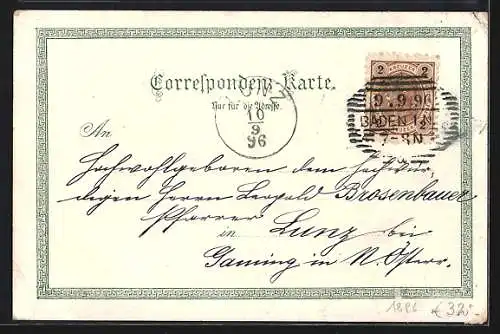 Correspondenz-Karte.
Nur für die Adresse.
2 KREUZER 2
9.9.96
BADEN I.N.
7-8N
LUNZ
10
9
96
An
Hochwohlgeboren dem Hochwür-
digen Herrn Leopold Brosenbauer
Pfarrer
in Lunz bei
Gaming in N. Österr.
1896 € 32